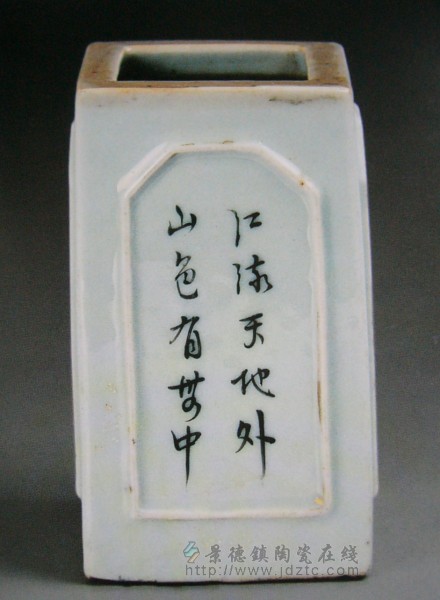 江流天地外
山色有無中
景德鎮陶瓷在綫
http://www.jdztc.com